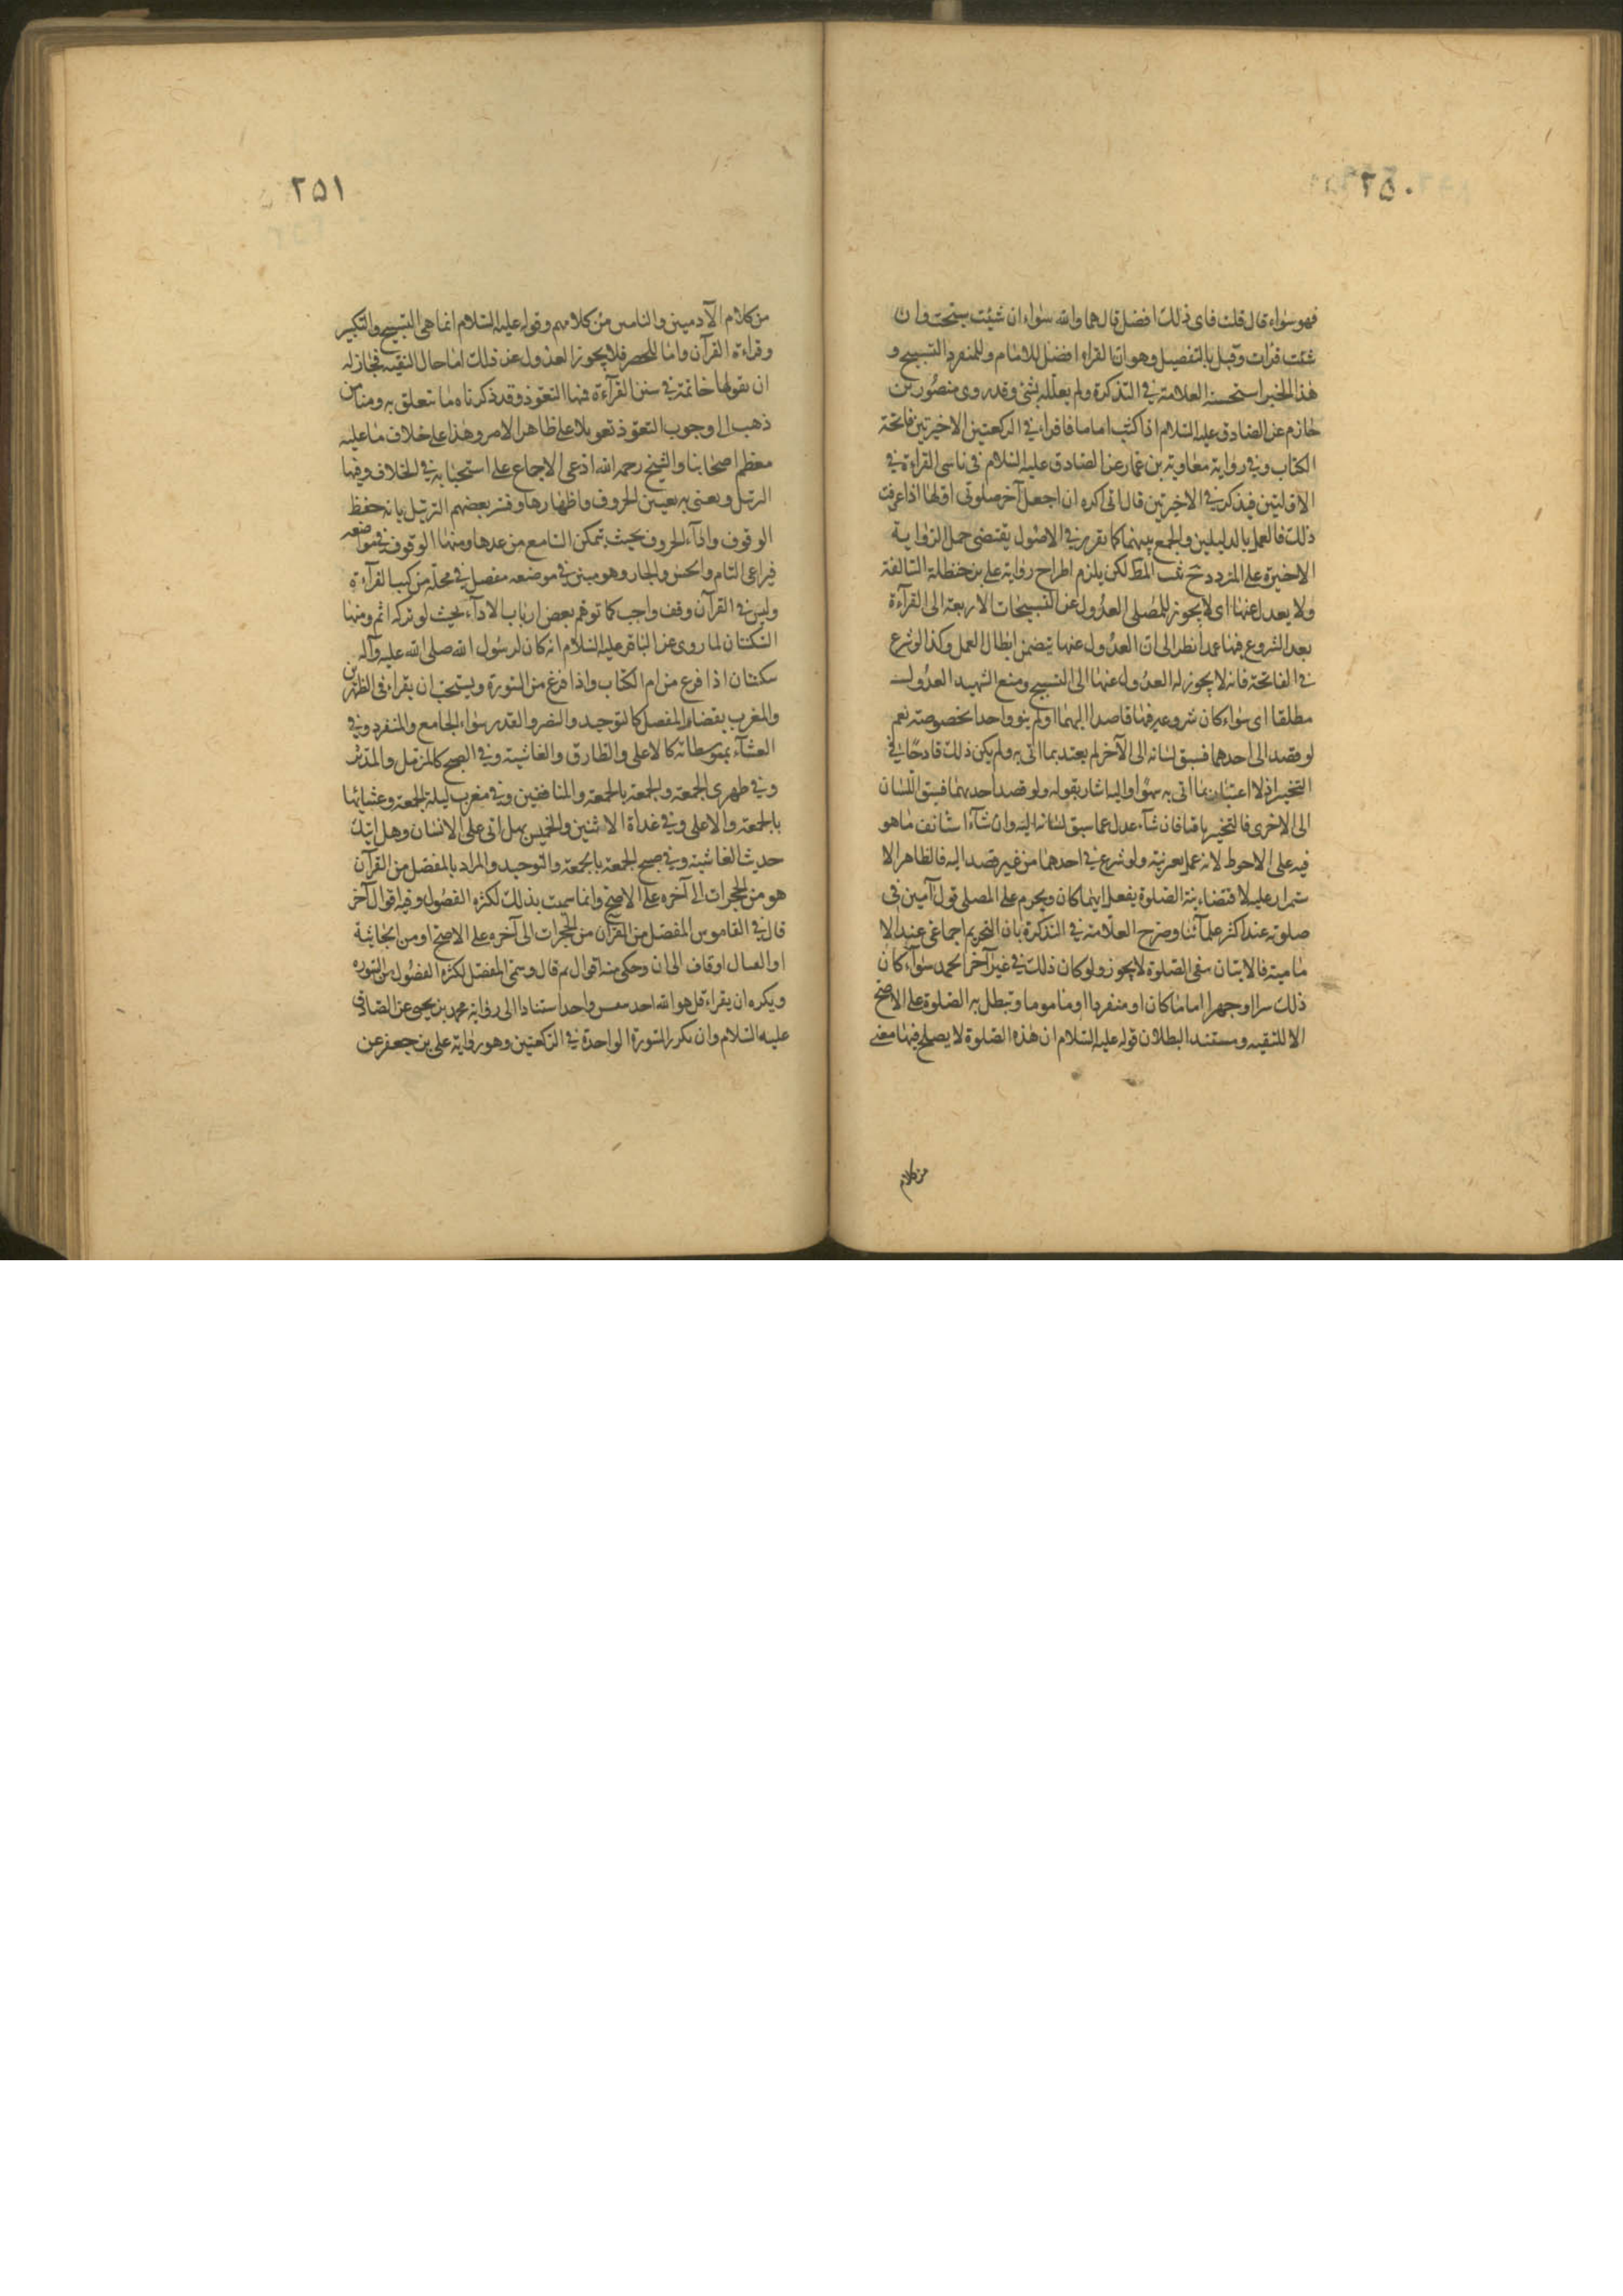 ٢٥٠
فهو سواء قال قلت فاى ذلك افضل قال هما والله سواء ان شئت سبحت وان
شئت قرات وقيل بالتفصيل وهو ان القراءة افضل للامام وللمنفرد التسبيح و
هذا الخبر استحسنه العلامة في التذكرة ولم يعلله بشئ وقد روى منصور بن
حازم عن الصادق عليه السلام اذا كنت اماما فاقراء في الركعتين الاخيرتين فاتحة
الكتاب وفي رواية معاوية بن عمار عن الصادق عليه السلام في ناسى القراءة في
الاوليتين فيذكر في الاخيرتين قال انى اكره ان اجعل آخر صلوتى اولها اذا عرفت
ذلك فالعمل بالدليلين والجمع بينهما كما تقرر في الاصول يقتضى حمل الرواية
الاخيرة على المتردد لكن يلزم اطراح رواية على بن حنظلة السالفة
ولا يعدل عنها اى لا يجوز للمصلى العدول عن التسبيحات الاربعة الى القرآءة
بعد الشروع فيها عمدا نظرا الى ان العدول عنها يتضمن ابطال العمل وكذا لو شرع
في الفاتحة فانه لا يجوز له العدول عنها الى التسبيح ومنع الشهيد العدول
مطلقا اى سواء كان شروعه فيها قاصدا اليهما او لم ينو واحدا بخصوصه نعم
لو قصد الى احدهما فسبق لسانه الى الآخر لم يعتد بما اتى به ولم يكن ذلك قادحا في
التخيير اذ لا اعتبار بما اتى به سهوا واليه اشار بقوله ولو قصد احديهما فسبق اللسان
الى الاخرى فالتخيير باق فان شآء عدل عما سبق لسانه اليه وان شآء استانف ما هو
فيه على الاحوط لانه عمل بغير نية ولو شرع في احدهما من غير قصد اليه فالظاهر الا
ستمرار عليه لاقتضاء نية الصلوة بفعل ايهما كان ويحرم على المصلى قول آمين في
صلوته عند اكثر علمآئنا وصرح العلامة في التذكرة بان التحريم اجماعى عند الا
مامية فالاتيان بها في الصلوة لا يجوز ولو كان ذلك في غير آخر الحمد سواء كان
ذلك سرا او جهرا اماما كان او منفردا او ماموما وتبطل به الصلوة على الاصح
الا للتقيه ومستند البطلان قوله عليه السلام ان هذه الصلوة لا يصلح فيها معنى
من كلام
٢٥١
من كلام الآدميين والتامين من كلامهم وقوله عليه السلام انما هى التسبيح والتكبير
وقراءة القرآن وانما للحصر فلا يجوز العدول عن ذلك اما حال التقيه فجاز له
ان يقولها خاتمة في سنن القرآءة فمنها التعوذ وقد ذكرناه ما يتعلق به ومنا من
ذهب الى وجوب التعوذ تعويلا على ظاهر الامر وهذا على خلاف ما عليه
معظم اصحابنا والشيخ رحمه الله ادعى الاجماع على استحبابه في الخلاف وفيها
الترتيل ويعنى به تعيين الحروف واظهارها وفسر بعضهم الترتيل بانه حفظ
الوقوف وادآء الحروف بحيث يتمكن السامع من عدها ومنها الوقوف في مواضعه
فيراعى التام والحسن والجار وهو مبين في موضعه مفصل في محله من كتب القرآءة
وليس في القرآن وقف واجب كما توهم بعض ارباب الادآء بحيث لو تركه اثم ومنها
السكتتان لما روى عن الباقر عليه السلام انه كان لرسول الله صلى الله عليه وآله
سكتتان اذا فرغ من ام الكتاب واذا فرغ من السورة ويستحب ان يقراء في الظهرين
والمغرب بقصار المفصل كالتوحيد والنصر والقدر سواء الجامع والمنفرد وفي
العشآء بمتوسطاته كالاعلى والطارق والغاشية وفي الصبح كالمزمل والمدثر
وفي ظهرى الجمعة والجمعة بالجمعة والمنافقين وفي مغرب ليلة الجمعة وعشائها
بالجمعة والاعلى وفي غداة الاثنين والخميس بهل اتى على الانسان وهل اتيك
حديث الغاشية وفي صبح الجمعة بالجمعة والتوحيد والمراد بالمفصل من القرآن
هو من الحجرات الى آخره على الاصح وانما سميت بذلك لكثرة الفصول وفيه اقوال آخر
قال في القاموس المفصل من القرآن من الحجرات الى آخره على الاصح او من الجاثية
او القتال او قاف الى ان وحكى منه اقوال ثم قال وسمى المفصل لكثرة الفصول بين السورة
ويكره ان يقراء قل هو الله احد بنفس واحد استنادا الى رواية محمد بن يحيى عن الصادق
عليه السلام وان يكرر السورة الواحدة في الركعتين وهو رواية على بن جعفر عن